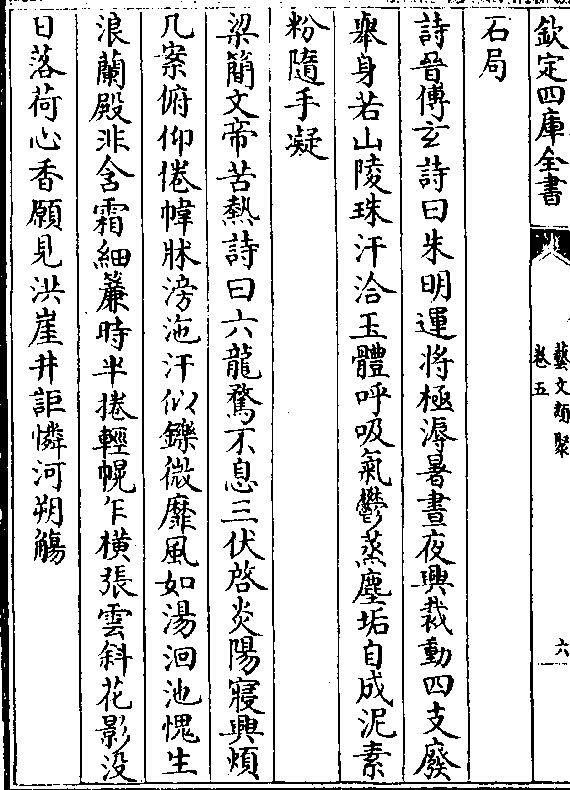 欽定四庫全書
藝文類聚
卷五
六
石局
詩晉傅玄詩曰朱明運將極溽暑晝夜興裁動四支廢
舉身若山陵珠汗洽玉體呼吸氣鬱蒸塵垢自成泥素
粉隨手凝
梁簡文帝苦熱詩曰六龍騖不息三伏啓炎陽寢興煩
几案俯仰倦幃牀滂沲汗似鑠微靡風如湯洄池愧生
浪蘭殿非含霜細簾時半捲輕幌乍橫張雲斜花影没
日落荷心香願見洪崖井詎憐河朔觴